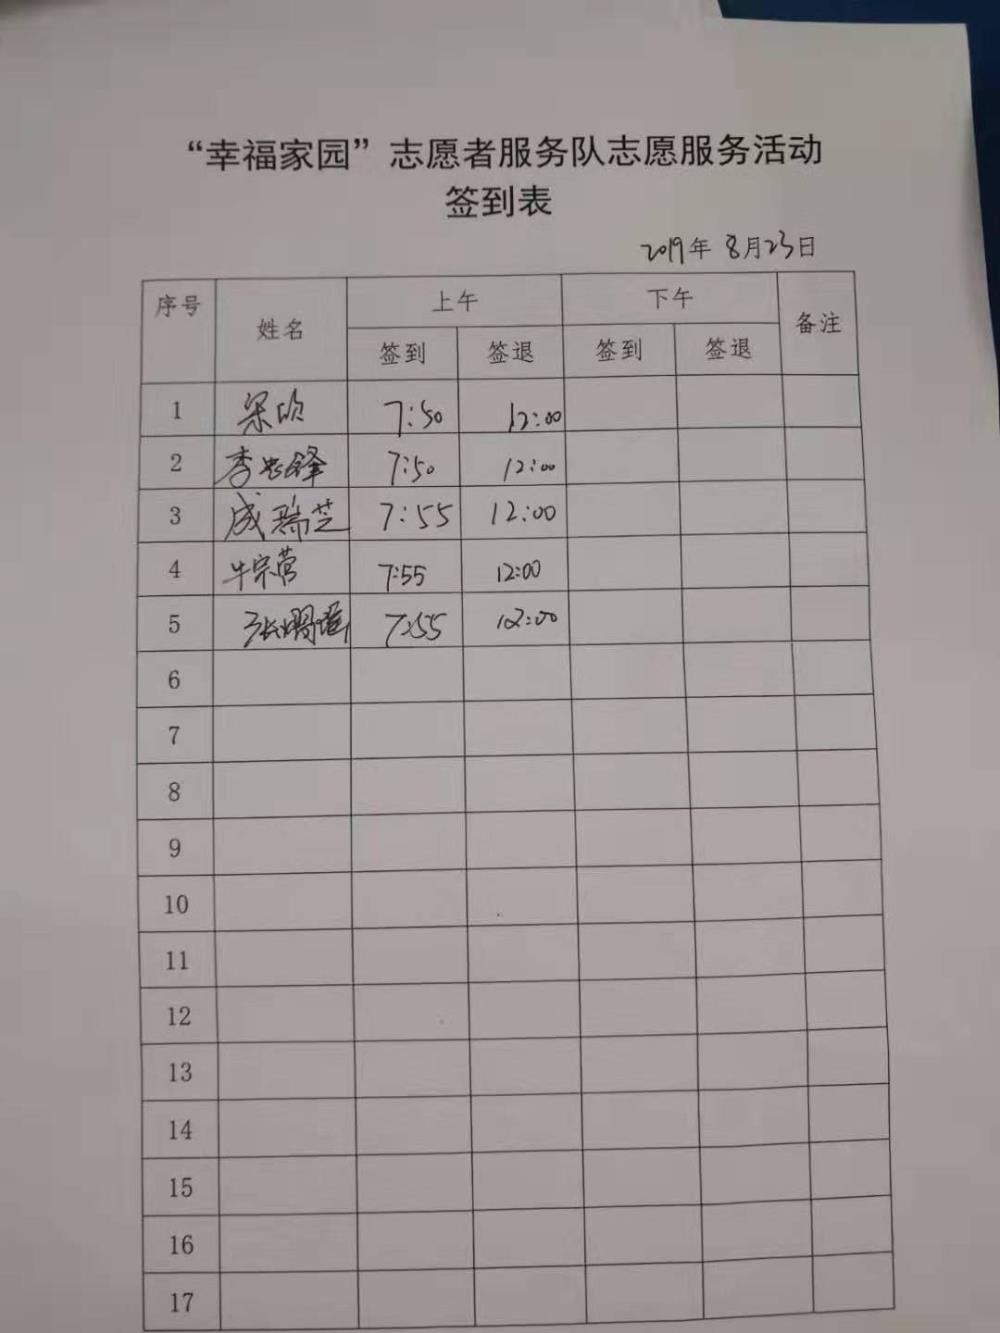 “幸福家园”志愿者服务队志愿服务活动
签到表
2019年 8月23日
序号 姓名 上午 下午 备注
签到 签退 签到 签退
1 7:50 12:00
2 李忠锋 7:50 12:00
3 成瑞芝 7:55 12:00
4 牛宗营 7:55 12:00
5 7:55 12:00
6
7
8
9
10
11
12
13
14
15
16
17